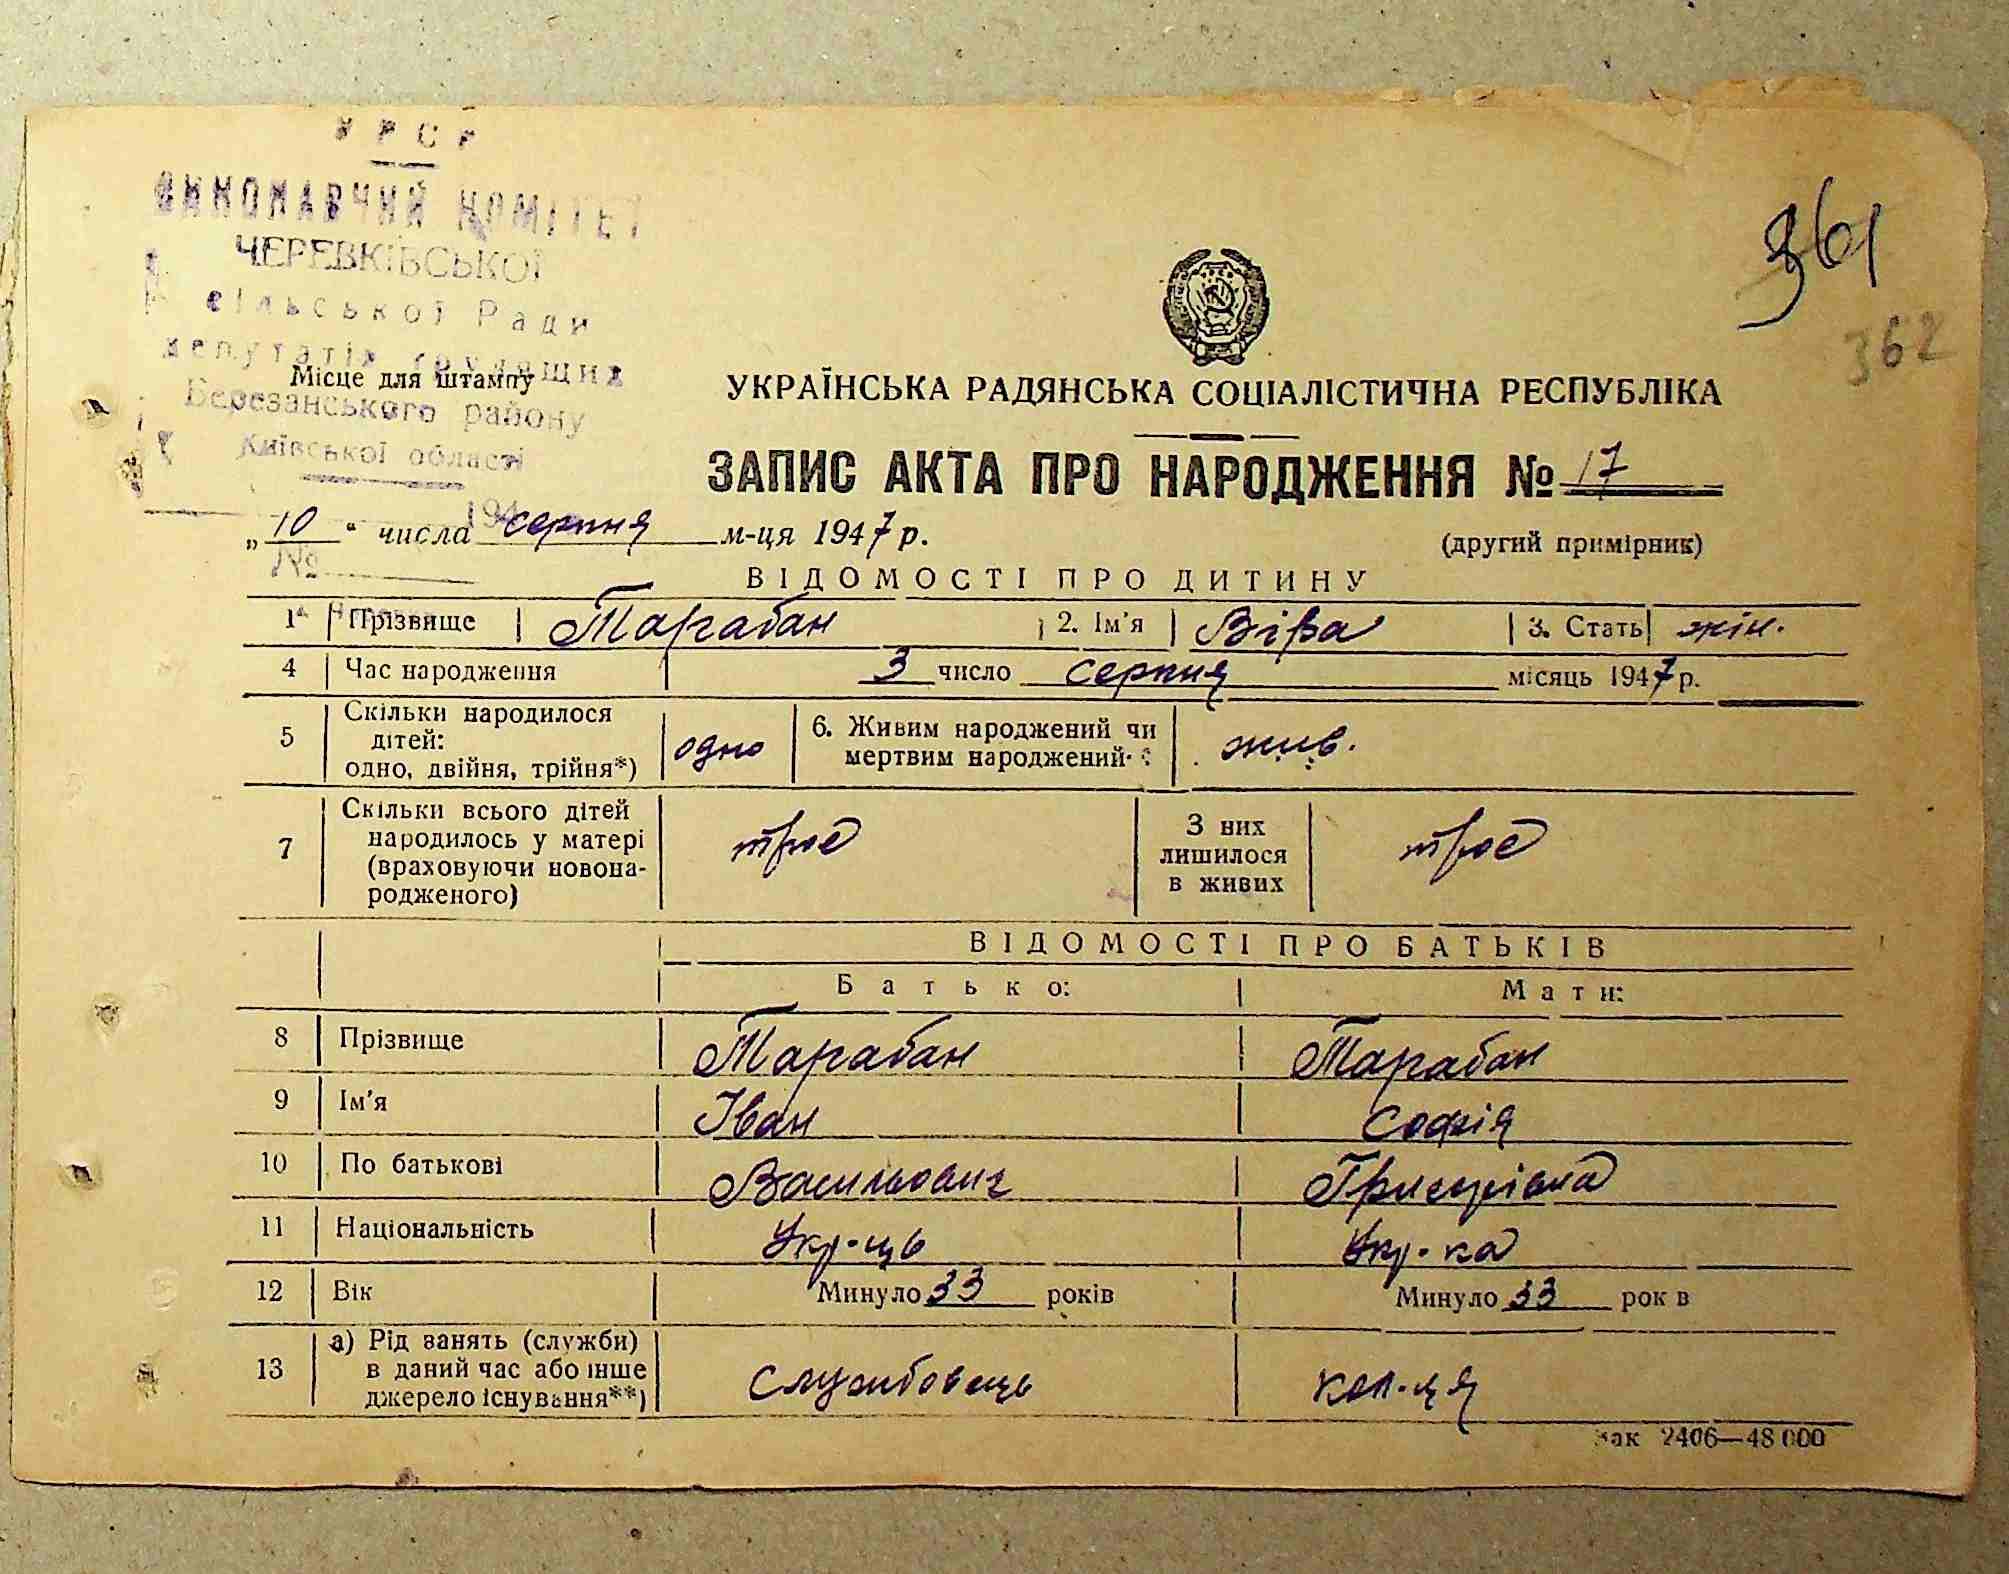 УРСР
ВИКОНАВЧИЙ КОМІТЕТ
ЧЕРЕВКІВСЬКОЇ
сільської Ради
депутатів трудящих
Березанського району
Київської області
194
№
Місце для штампу
361
362
УКРАЇНСЬКА РАДЯНСЬКА СОЦІАЛІСТИЧНА РЕСПУБЛІКА
ЗАПИС АКТА ПРО НАРОДЖЕННЯ № 17
„10“ числа серпня м-ця 1947 р.
(другий примірник)
ВІДОМОСТІ ПРО ДИТИНУ
1 Прізвище Тарабан 2. Ім'я Віра 3. Стать жін.
4 Час народження 3 число серпня місяць 1947 р.
5 Скільки народилося дітей: одно, двійня, трійня*) одно 6. Живим народжений чи мертвим народжений жив.
7 Скільки всього дітей народилось у матері (враховуючи новонародженого) троє З них лишилося в живих троє
ВІДОМОСТІ ПРО БАТЬКІВ
Батько: Мати:
8 Прізвище Тарабан Тарабан
9 Ім'я Іван Софія
10 По батькові Васильович Григорівна
11 Національність Укр-ць Укр-ка
12 Вік Минуло 33 років Минуло 33 рок в
13 а) Рід занять (служби) в даний час або інше джерело існування**) службовець кол-ця
зак 2406—48 000